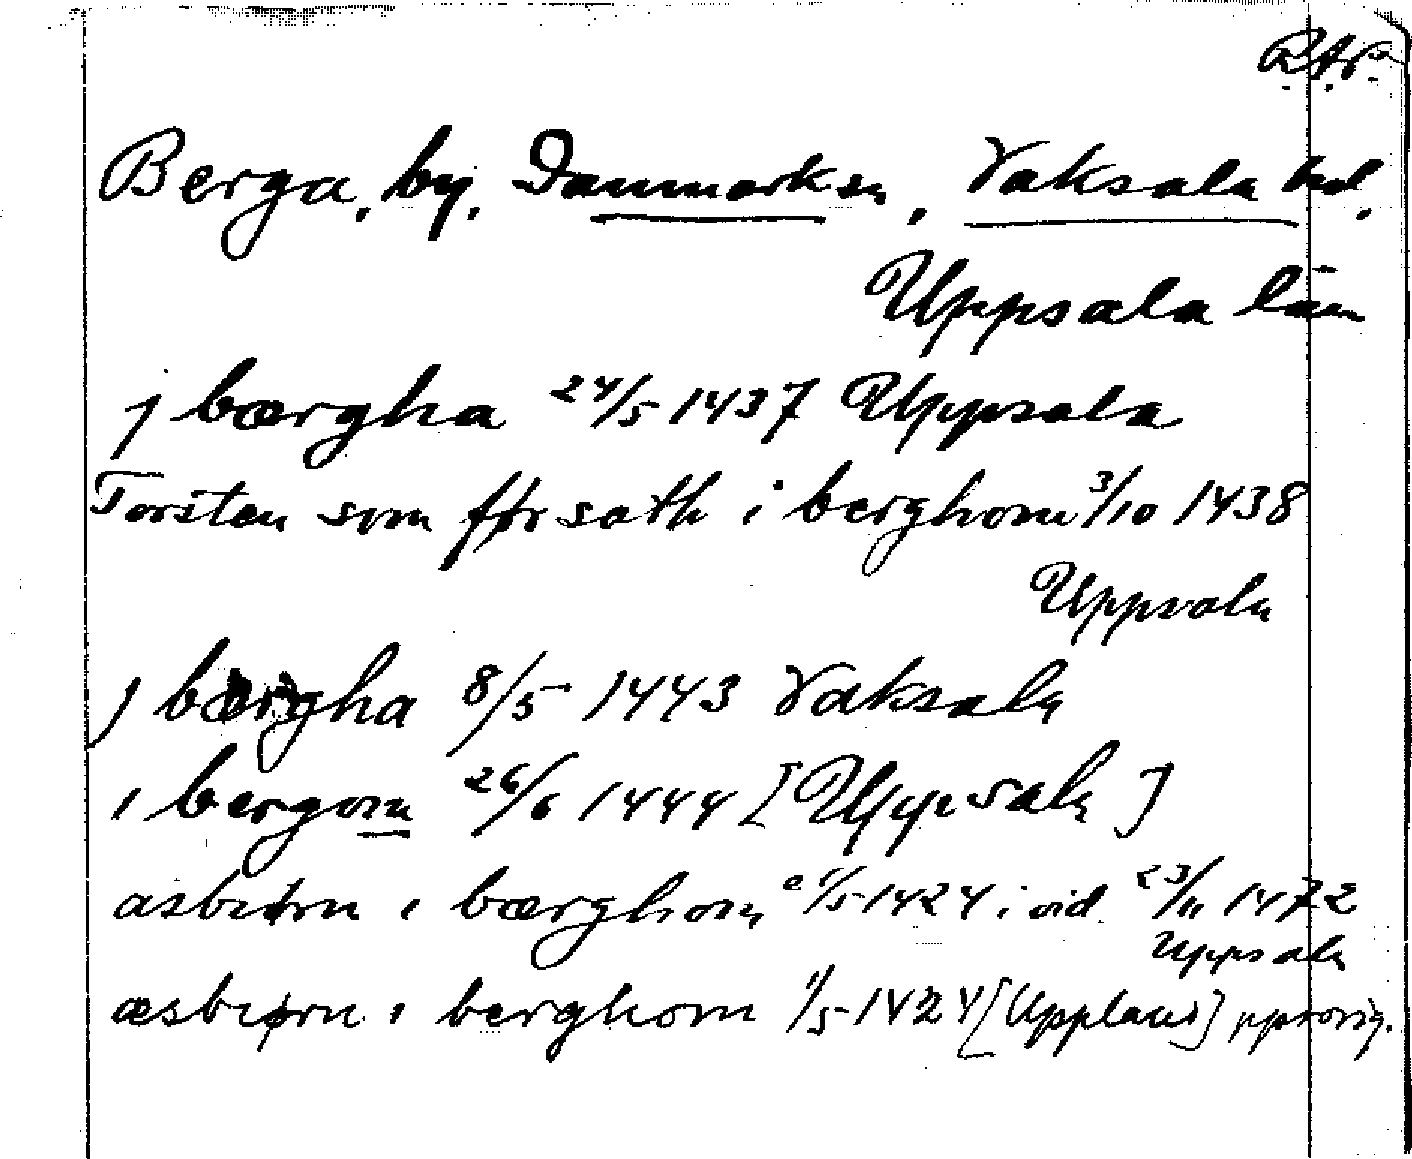 R.A.P.
Berga, by, Danmarks sn, Vaksala hd,
Uppsala län
j bærgha 24/5 1437 Uppsala
Torsten som før sath i berghom 3/10 1438
Uppsala
j bærgha 8/5 1443 Vaksala
i bergom 26/6 1444 [Uppsala]
asbiørn i bærghom 1/5 1424 i vid. 23/11 1472
Uppsala
æsbiørn i berghom 1/5 1424 [Uppland] pporig.